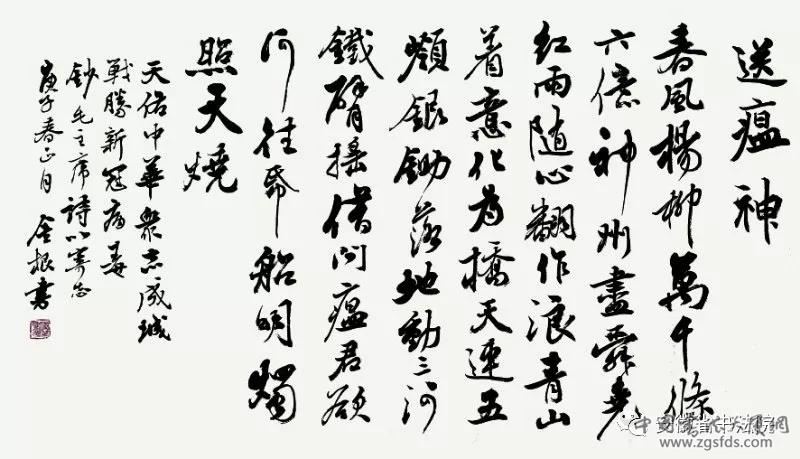 送瘟神
春風楊柳萬千條
六億神州盡舜堯
紅雨随心翻作浪青山
着意化為橋天連五
嶺銀鋤落地動三河
鐵臂搖借問瘟君欲
何往帋船明燭
照天燒
天佑中華衆志成城
戰勝新冠病毒
鈔毛主席詩以寄志
庚子春正月 金根書
www.zgsfds.com